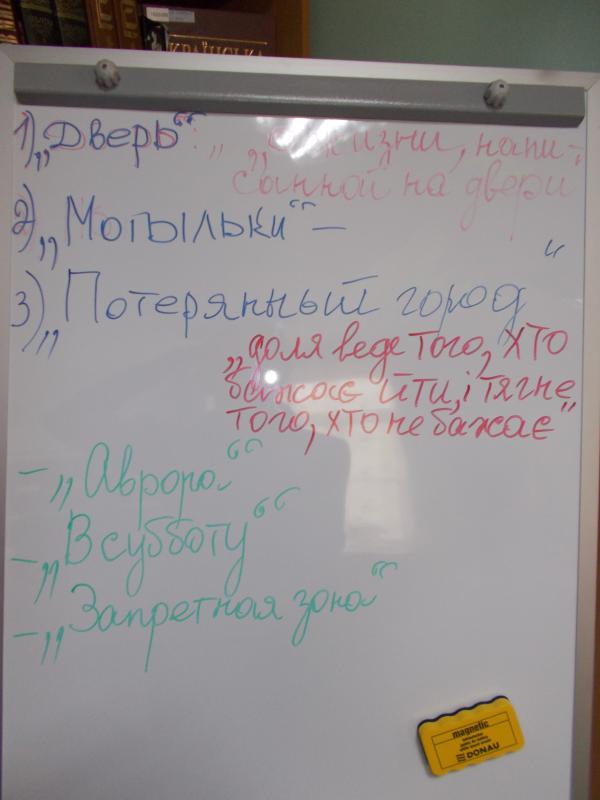 КРАЇНСЬКА
1) „Дверь“: „ „О жизни, напи-
санной на двери
2) „Мотыльки“ –
3) „Потерянный город“
„доля веде того, хто
бажає йти, і тягне
того, хто не бажає“
– „Аврора“
– „В субботу“
– „Запретная зона“
magnetic
DONAU